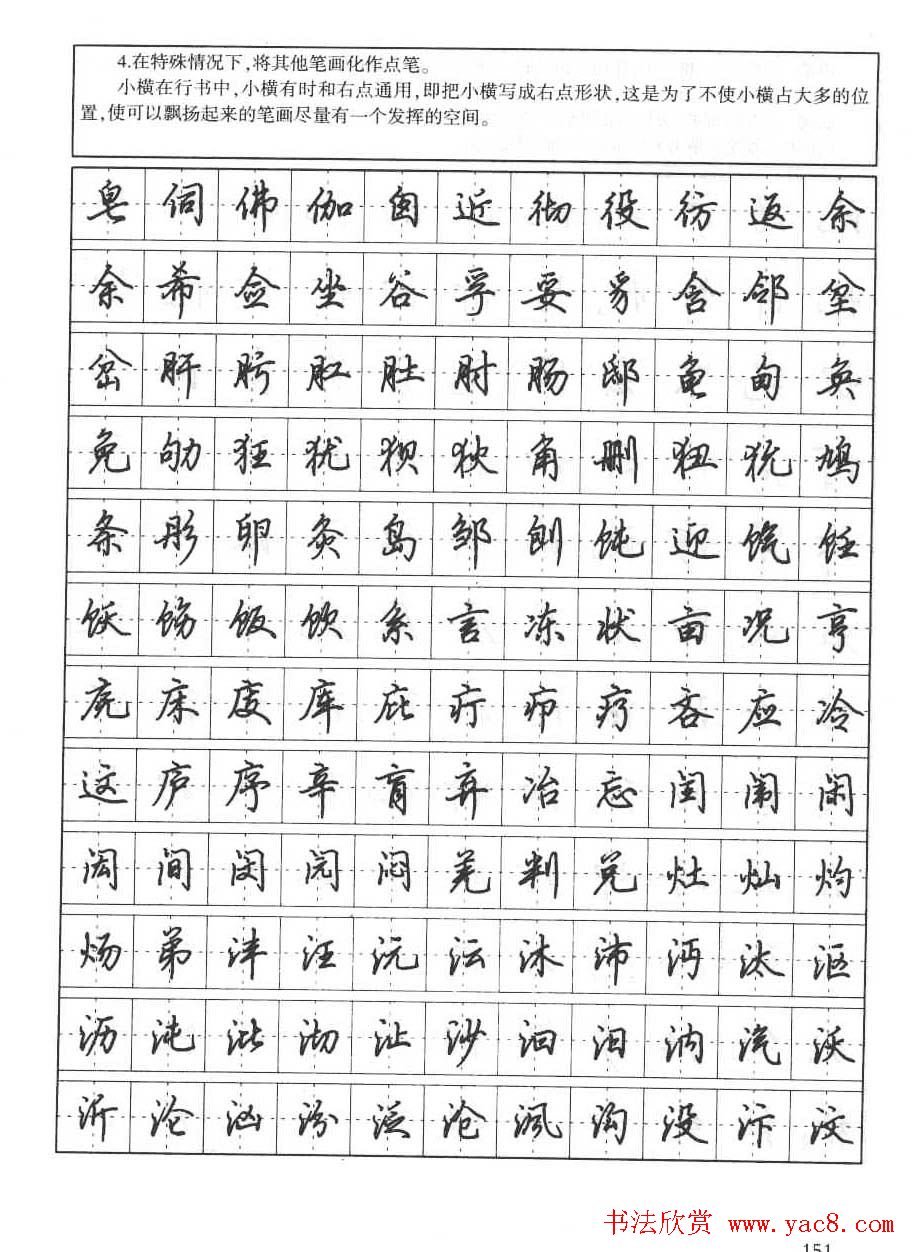 4.在特殊情况下,将其他笔画化作点笔。
小横在行书中,小横有时和右点通用,即把小横写成右点形状,这是为了不使小横占大多的位
置,使可以飘扬起来的笔画尽量有一个发挥的空间。
皂伺佛伽囱近彻役彷返余
余希佥坐谷孚妥豸含邻坌
岔肝肟肛肚肘肠邸龟甸奂
免劬狂犹狈狄角删狃犹鸠
条彤卵灸岛邹刨饨迎饩饪
饫饬饭饮系言冻状亩况亨
庑床庋库庇疔疖疗吝应冷
这庐序辛肓弃冶忘闰闱闲
闳间闵闶闷羌判兑灶灿灼
炀弟沣汪沅沄沐沛沔汰沤
沥沌沘沏沚沙汩汨汭汽沃
沂沦汹汾泛沧沨沟没汴汶
书法欣赏 www.yac8.com
151